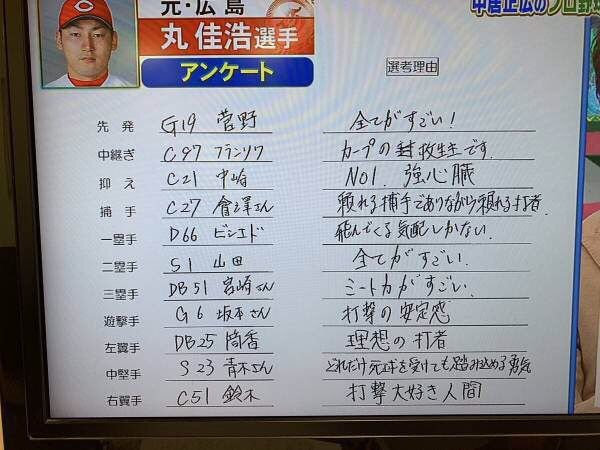 元・広島
丸佳浩選手
アンケート
中居正広のプロ野球
選考理由
先発 G19 菅野 全てがすごい!
中継ぎ C97 フランソワ カープの救世主です。
抑え C21 中崎 NO1. 強心臓
捕手 C27 會澤さん 頼れる捕手でありながら頼れる打者.
一塁手 D66 ビシエド 飛んでくる気配しかない.
二塁手 S1 山田 全てがすごい.
三塁手 DB51 宮崎さん ミート力がすごい.
遊撃手 G6 坂本さん 打撃の安定感
左翼手 DB25 筒香 理想の打者
中堅手 S23 青木さん どれだけ死球を受けても踏み込める勇気
右翼手 C51 鈴木 打撃大好き人間